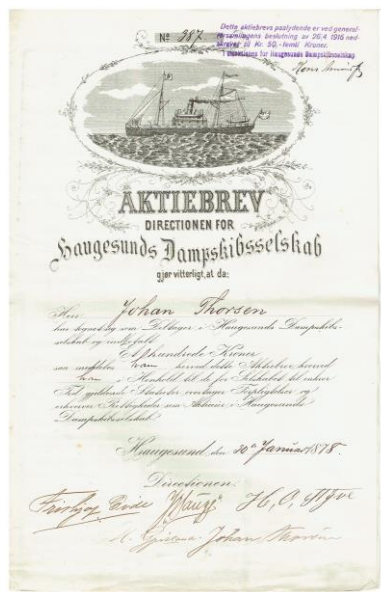 No 387
Dette aktiebrevs paalydende er ved general-
forsamlingens beslutning av 26/4 1916 ned-
skrevet til Kr. 50,- femti Kroner.
I direktionen for Haugesunds Dampskibsselskap
AKTIEBREV
DIRECTIONEN FOR
Haugesunds Dampskibsselskab
gjør vitterligt, at da:
Herr Johan Thorsen
har tegnet sig som Deltager i Haugesunds Dampskibs-
selskab og indbetalt
Kroner
saa meddeles ham herved dette Aktiebrev hvorved
han i Henhold til de for Selskabet til enhver
Tid gjældende Statuter overtager Forpligtelser og
erhverver Rettigheder som Aktionær i Haugesunds
Dampskibsselskab.
Haugesund den 30te Januar 1878.
Directionen:
Johan Thorsen